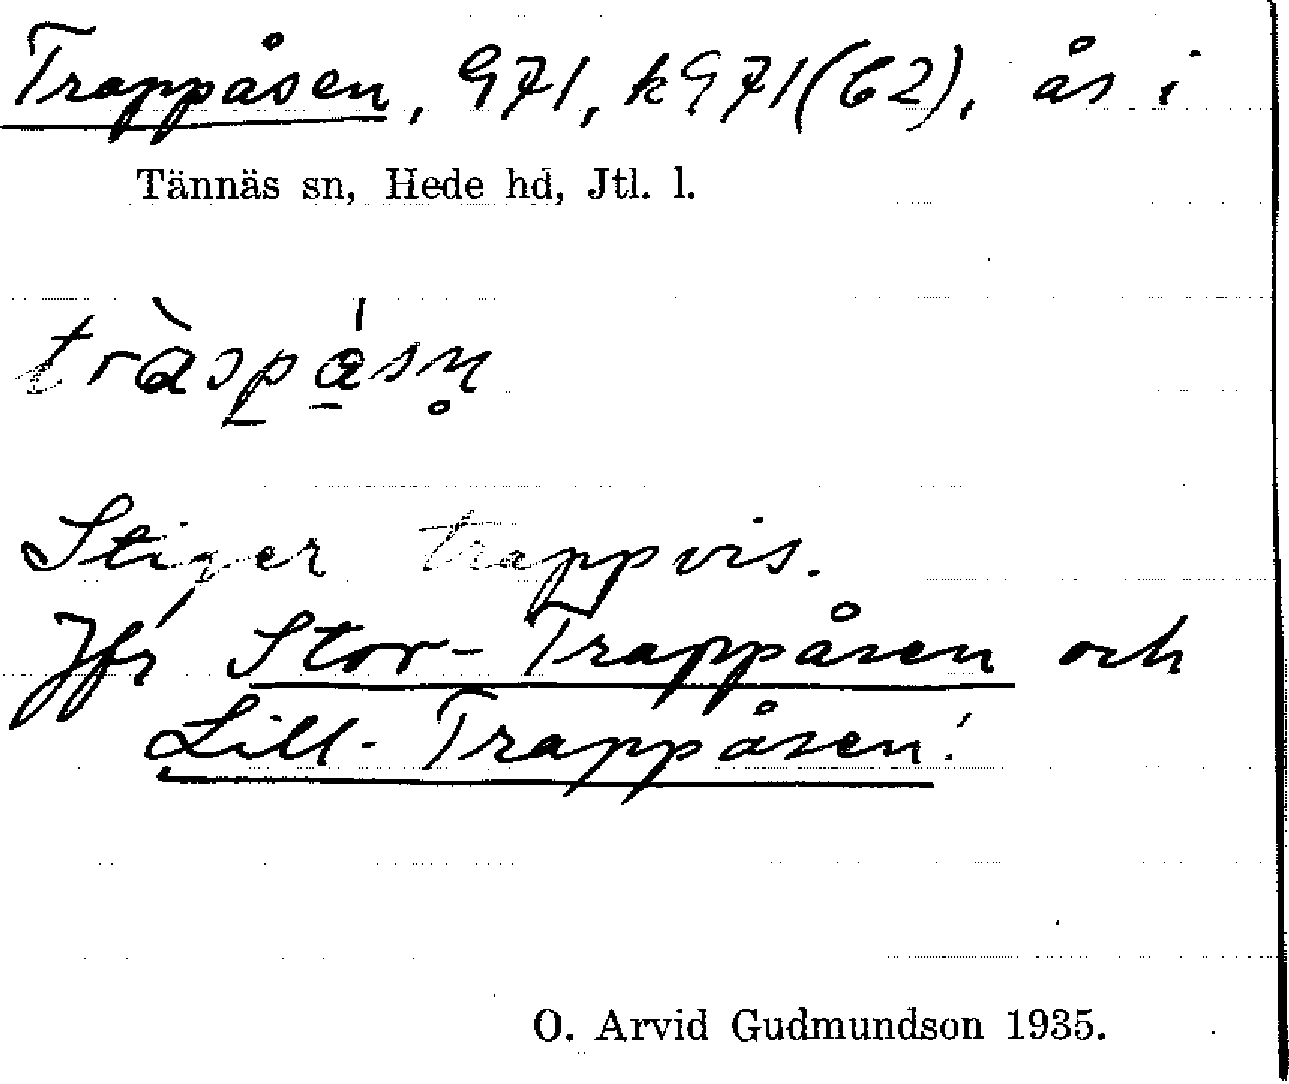 Trappåsen, 971, k971(62), ås i
Tännäs sn, Hede hd, Jtl. l.
Stiger trappvis.
Jfr Stor-Trappåsen och
Lill-Trappåsen!
O. Arvid Gudmundson 1935.